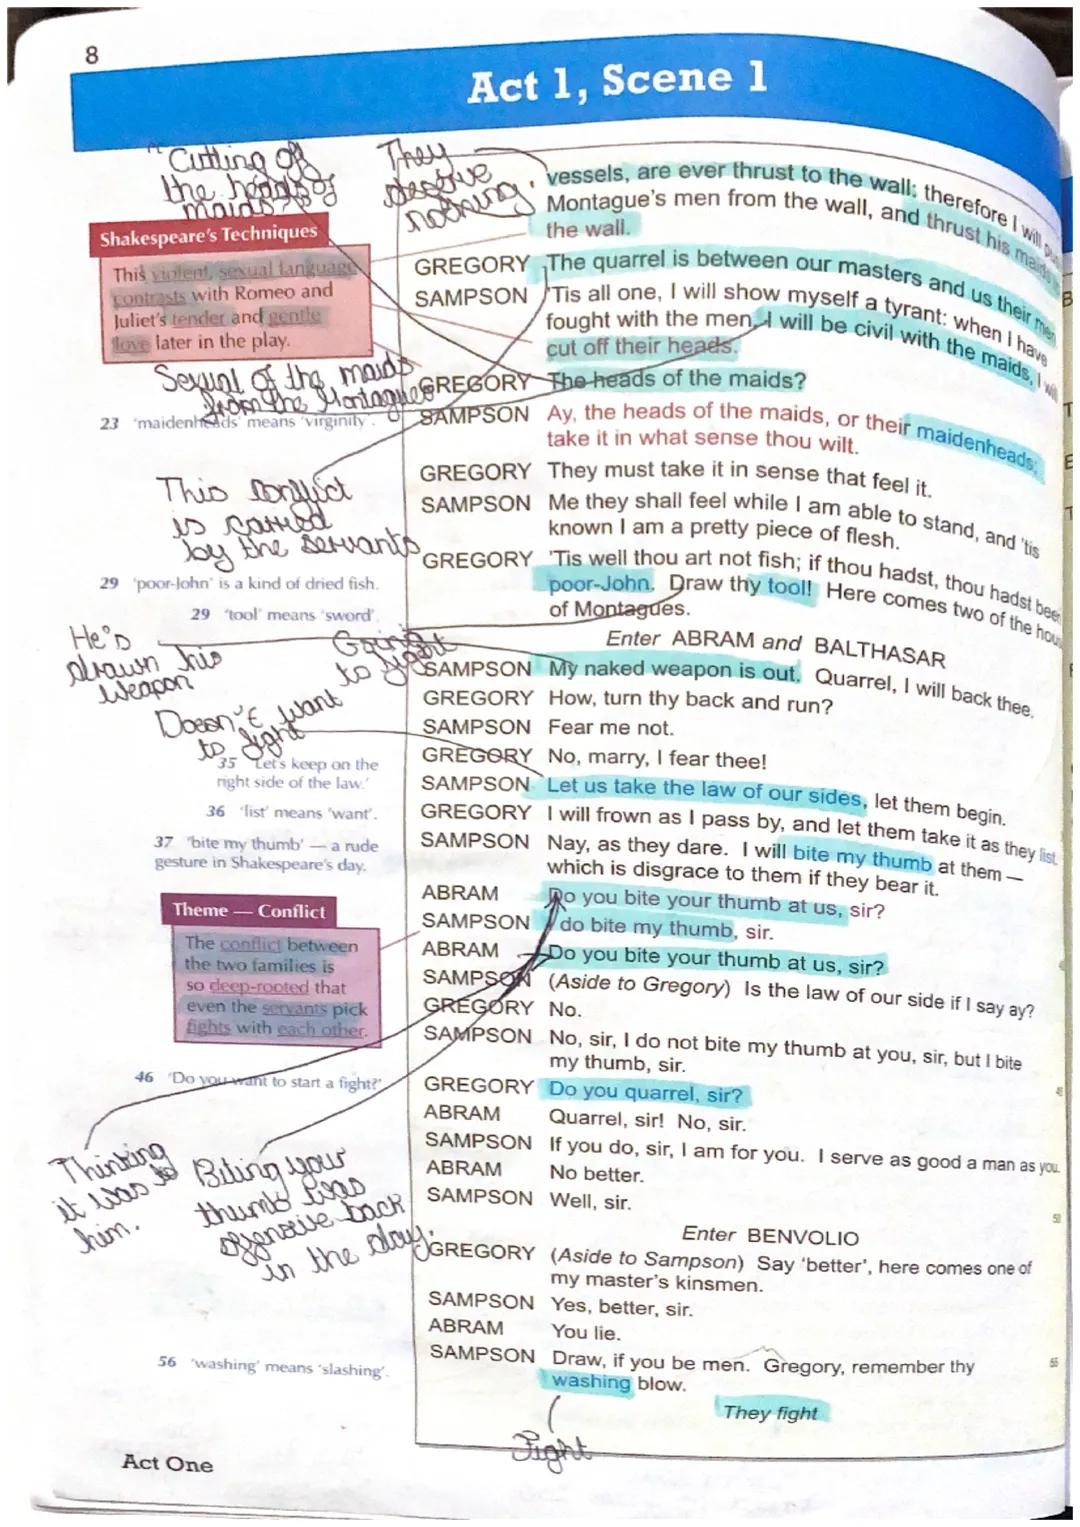 8
Act 1, Scene 1
"Cutting of
the heads of
maids?
They
deserve
nothing.
Shakespeare's Techniques
This violent, sexual language
contrasts with Romeo and
Juliet's tender and gentle
love later in the play.
Sexual of the maids
from the Montagues
23 'maidenheads' means 'virginity'.
This conflict
is carried
by the servants
29 'poor-John' is a kind of dried fish.
29 'tool' means 'sword'.
He's
drawn his
weapon
Going
to fight
Doesn't want
to fight
35 'Let's keep on the
right side of the law.'
36 'list' means 'want'.
37 'bite my thumb' — a rude
gesture in Shakespeare's day.
Theme — Conflict
The conflict between
the two families is
so deep-rooted that
even the servants pick
fights with each other.
46 'Do you want to start a fight?'
Thinking
it was to
him.
Biting your
thumb was
offensive back
in the day.
56 'washing' means 'slashing'.
vessels, are ever thrust to the wall; therefore I will
Montague's men from the wall, and thrust his maids
the wall.
GREGORY The quarrel is between our masters and us their men
SAMPSON 'Tis all one, I will show myself a tyrant: when I have
fought with the men, I will be civil with the maids, I will
cut off their heads.
GREGORY The heads of the maids?
SAMPSON Ay, the heads of the maids, or their maidenheads;
take it in what sense thou wilt.
GREGORY They must take it in sense that feel it.
SAMPSON Me they shall feel while I am able to stand, and 'tis
known I am a pretty piece of flesh.
GREGORY 'Tis well thou art not fish; if thou hadst, thou hadst been
poor-John. Draw thy tool! Here comes two of the hou
of Montagues.
Enter ABRAM and BALTHASAR
SAMPSON My naked weapon is out. Quarrel, I will back thee.
GREGORY How, turn thy back and run?
SAMPSON Fear me not.
GREGORY No, marry, I fear thee!
SAMPSON Let us take the law of our sides, let them begin.
GREGORY I will frown as I pass by, and let them take it as they list.
SAMPSON Nay, as they dare. I will bite my thumb at them —
which is disgrace to them if they bear it.
ABRAM Do you bite your thumb at us, sir?
SAMPSON I do bite my thumb, sir.
ABRAM Do you bite your thumb at us, sir?
SAMPSON (Aside to Gregory) Is the law of our side if I say ay?
GREGORY No.
SAMPSON No, sir, I do not bite my thumb at you, sir, but I bite
my thumb, sir.
GREGORY Do you quarrel, sir?
ABRAM Quarrel, sir! No, sir.
SAMPSON If you do, sir, I am for you. I serve as good a man as you.
ABRAM No better.
SAMPSON Well, sir.
50
Enter BENVOLIO
GREGORY (Aside to Sampson) Say 'better', here comes one of
my master's kinsmen.
SAMPSON Yes, better, sir.
ABRAM You lie.
SAMPSON Draw, if you be men. Gregory, remember thy
55
washing blow.
They fight
Fight
Act One